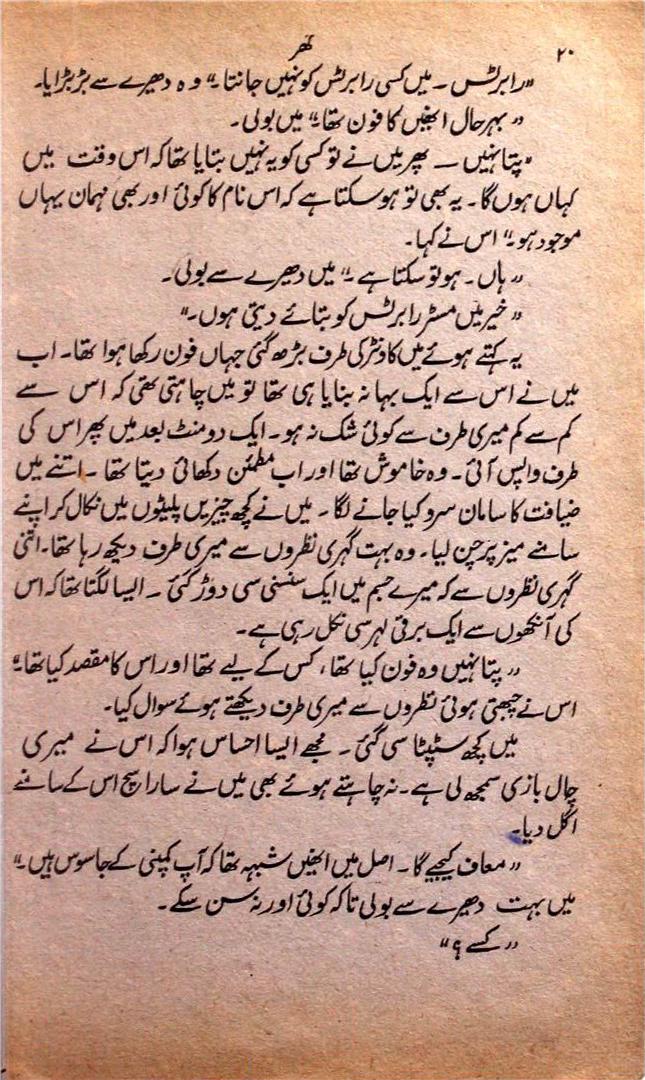 ۲۰
گھر
“رابرٹس ۔ میں کسی رابرٹس کو نہیں جانتا۔” وہ دھیرے سے بڑبڑایا۔
“بہرحال انھیں کا فون تھا۔” میں بولی۔
“پتا نہیں — پھر میں نے تو کسی کو یہ نہیں بتایا تھا کہ اس وقت میں
کہاں ہوں گا۔ یہ بھی تو ہو سکتا ہے کہ اس نام کا کوئی اور بھی مہمان یہاں
موجود ہو۔” اس نے کہا۔
“ہاں ۔ ہو تو سکتا ہے ۔” میں دھیرے سے بولی۔
“خیر میں مسٹر رابرٹس کو بتائے دیتی ہوں۔”
یہ کہتے ہوئے میں کاونٹر کی طرف بڑھ گئی جہاں فون رکھا ہوا تھا۔ اب
میں نے اس سے ایک بہانہ بنایا ہی تھا تو میں چاہتی تھی کہ اس سے
کم سے کم میری طرف سے کوئی شک نہ ہو۔ ایک دو منٹ بعد میں پھر اس کی
طرف واپس آئی۔ وہ خاموش تھا اور اب مطمئن دکھائی دیتا تھا ۔ اتنے میں
ضیافت کا سامان سرو کیا جانے لگا۔ میں نے کچھ چیزیں پلیٹوں میں نکال کر اپنے
سامنے میز پر چن لیا۔ وہ بہت گہری نظروں سے میری طرف دیکھ رہا تھا۔ اتنی
گہری نظروں سے کہ میرے جسم میں ایک سنسنی سی دوڑ گئی ۔ ایسا لگتا تھا کہ اس
کی آنکھوں سے ایک برقی لہر سی نکل رہی ہے۔
“پتا نہیں وہ فون کیا تھا، کس کے لیے تھا اور اس کا مقصد کیا تھا۔”
اس نے چبھتی ہوئی نظروں سے میری طرف دیکھتے ہوئے سوال کیا۔
میں کچھ سٹپٹا سی گئی ۔ مجھے ایسا احساس ہوا کہ اس نے میری
چال بازی سمجھ لی ہے۔ نہ چاہتے ہوئے بھی میں نے سارا سچ اس کے سامنے
اگل دیا۔
“معاف کیجیے گا۔ اصل میں انھیں شبہہ تھا کہ آپ کمپنی کے جاسوس ہیں۔”
میں بہت دھیرے سے بولی تاکہ کوئی اور نہ سن سکے۔
“کسے ؟”